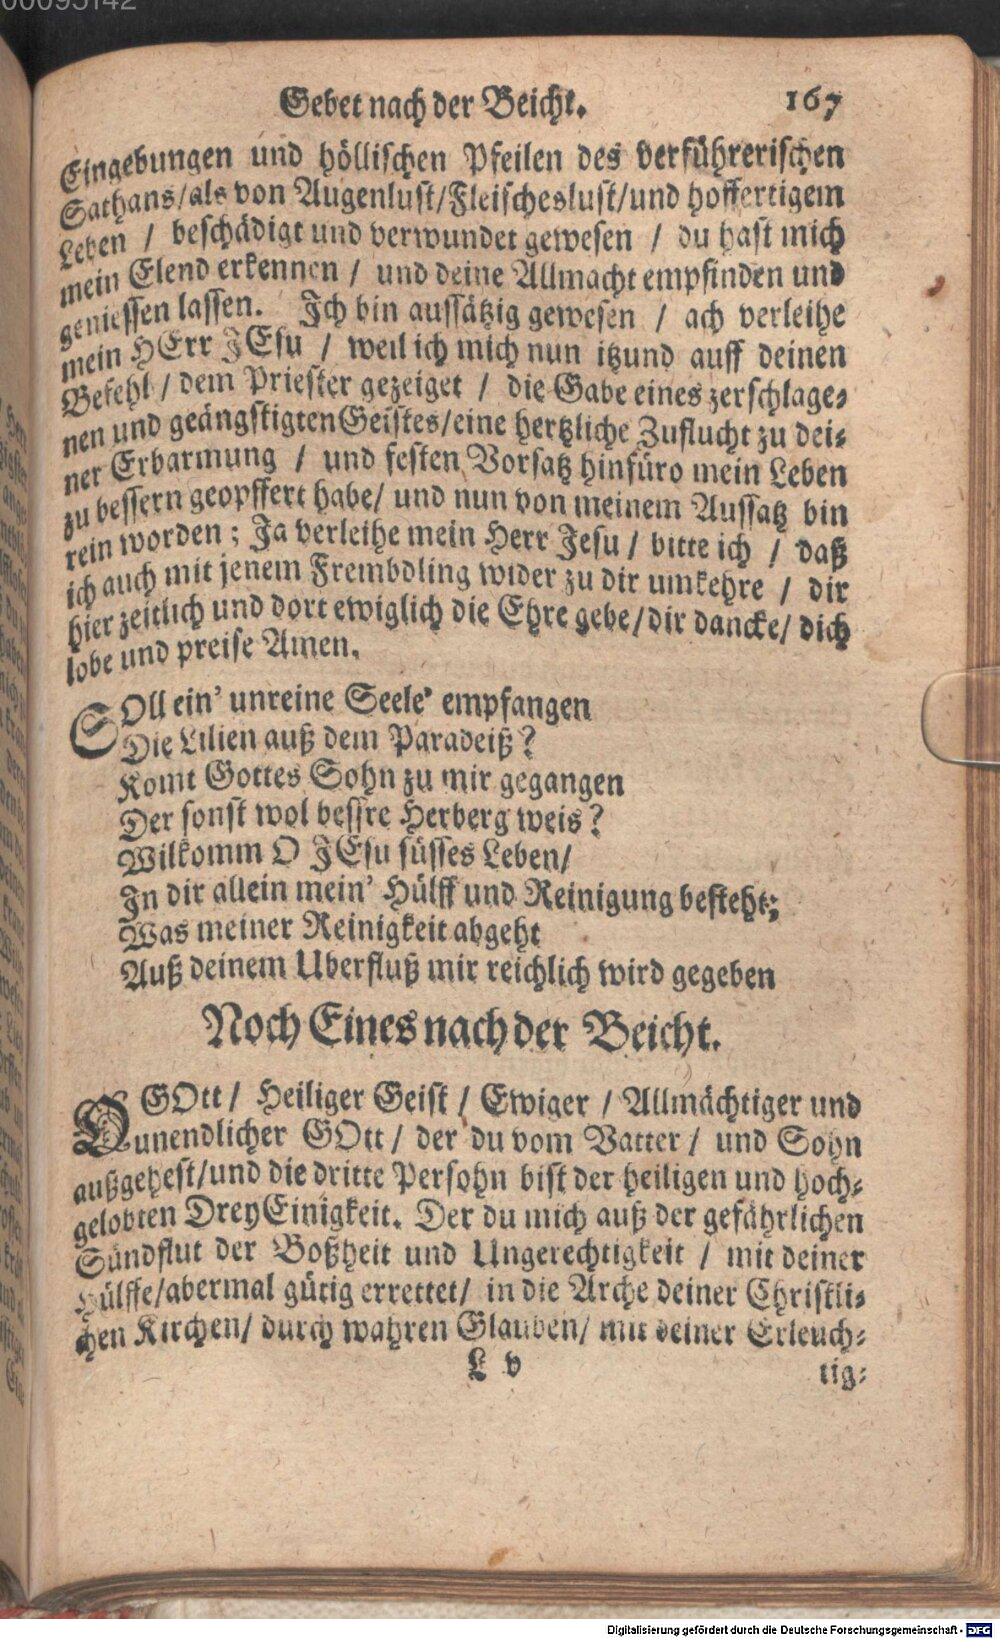 00095142
Gebet nach der Beicht. 167
Eingebungen und höllischen Pfeilen des verführerischen
Sathans/als von Augenlust/Fleischeslust/und hoffertigem
Leben / beschädigt und verwundet gewesen / du hast mich
mein Elend erkennen / und deine Allmacht empfinden und
geniessen lassen. Ich bin aussätzig gewesen / ach verleihe
mein HErr JEsu / weil ich mich nun itzund auff deinen
Befehl / dem Priester gezeiget / die Gabe eines zerschlage-
nen und geängstigten Geistes/eine hertzliche Zuflucht zu dei-
ner Erbarmung / und festen Vorsatz hinfüro mein Leben
zu bessern geopffert habe/ und nun von meinem Aussatz bin
rein worden ; Ja verleihe mein Herr Jesu / bitte ich / daß
ich auch mit jenem Frembdling wider zu dir umkehre / dir
hier zeitlich und dort ewiglich die Ehre gebe/dir dancke/ dich
lobe und preise Amen.
SOll ein' unreine Seele' empfangen
Die Lilien auß dem Paradeiß?
Komt Gottes Sohn zu mir gegangen
Der sonst wol bessre Herberg weis?
Wilkomm O JEsu süsses Leben/
In dir allein mein' Hülff und Reinigung besteht;
Was meiner Reinigkeit abgeht
Auß deinem Uberfluß mir reichlich wird gegeben
Noch Eines nach der Beicht.
O GOtt / Heiliger Geist / Ewiger / Allmächtiger und
unendlicher GOtt / der du vom Vatter / und Sohn
außgehest/und die dritte Persohn bist der heiligen und hoch-
gelobten DreyEinigkeit. Der du mich auß der gefährlichen
Sündflut der Boßheit und Ungerechtigkeit / mit deiner
Hülffe/abermal gütig errettet/ in die Arche deiner Christli-
chen Kirchen/ durch wahren Glauben/ mit deiner Erleuch-
L v tig-
Digitalisierung gefördert durch die Deutsche Forschungsgemeinschaft - DFG